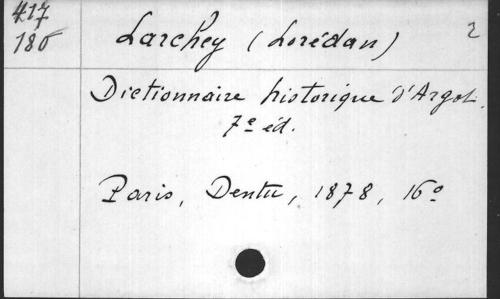 417
186
Larchey (Lorédan)
2
Dictionnaire historique d'Argot.
7e éd.
Paris, Dentu, 1878, 16o